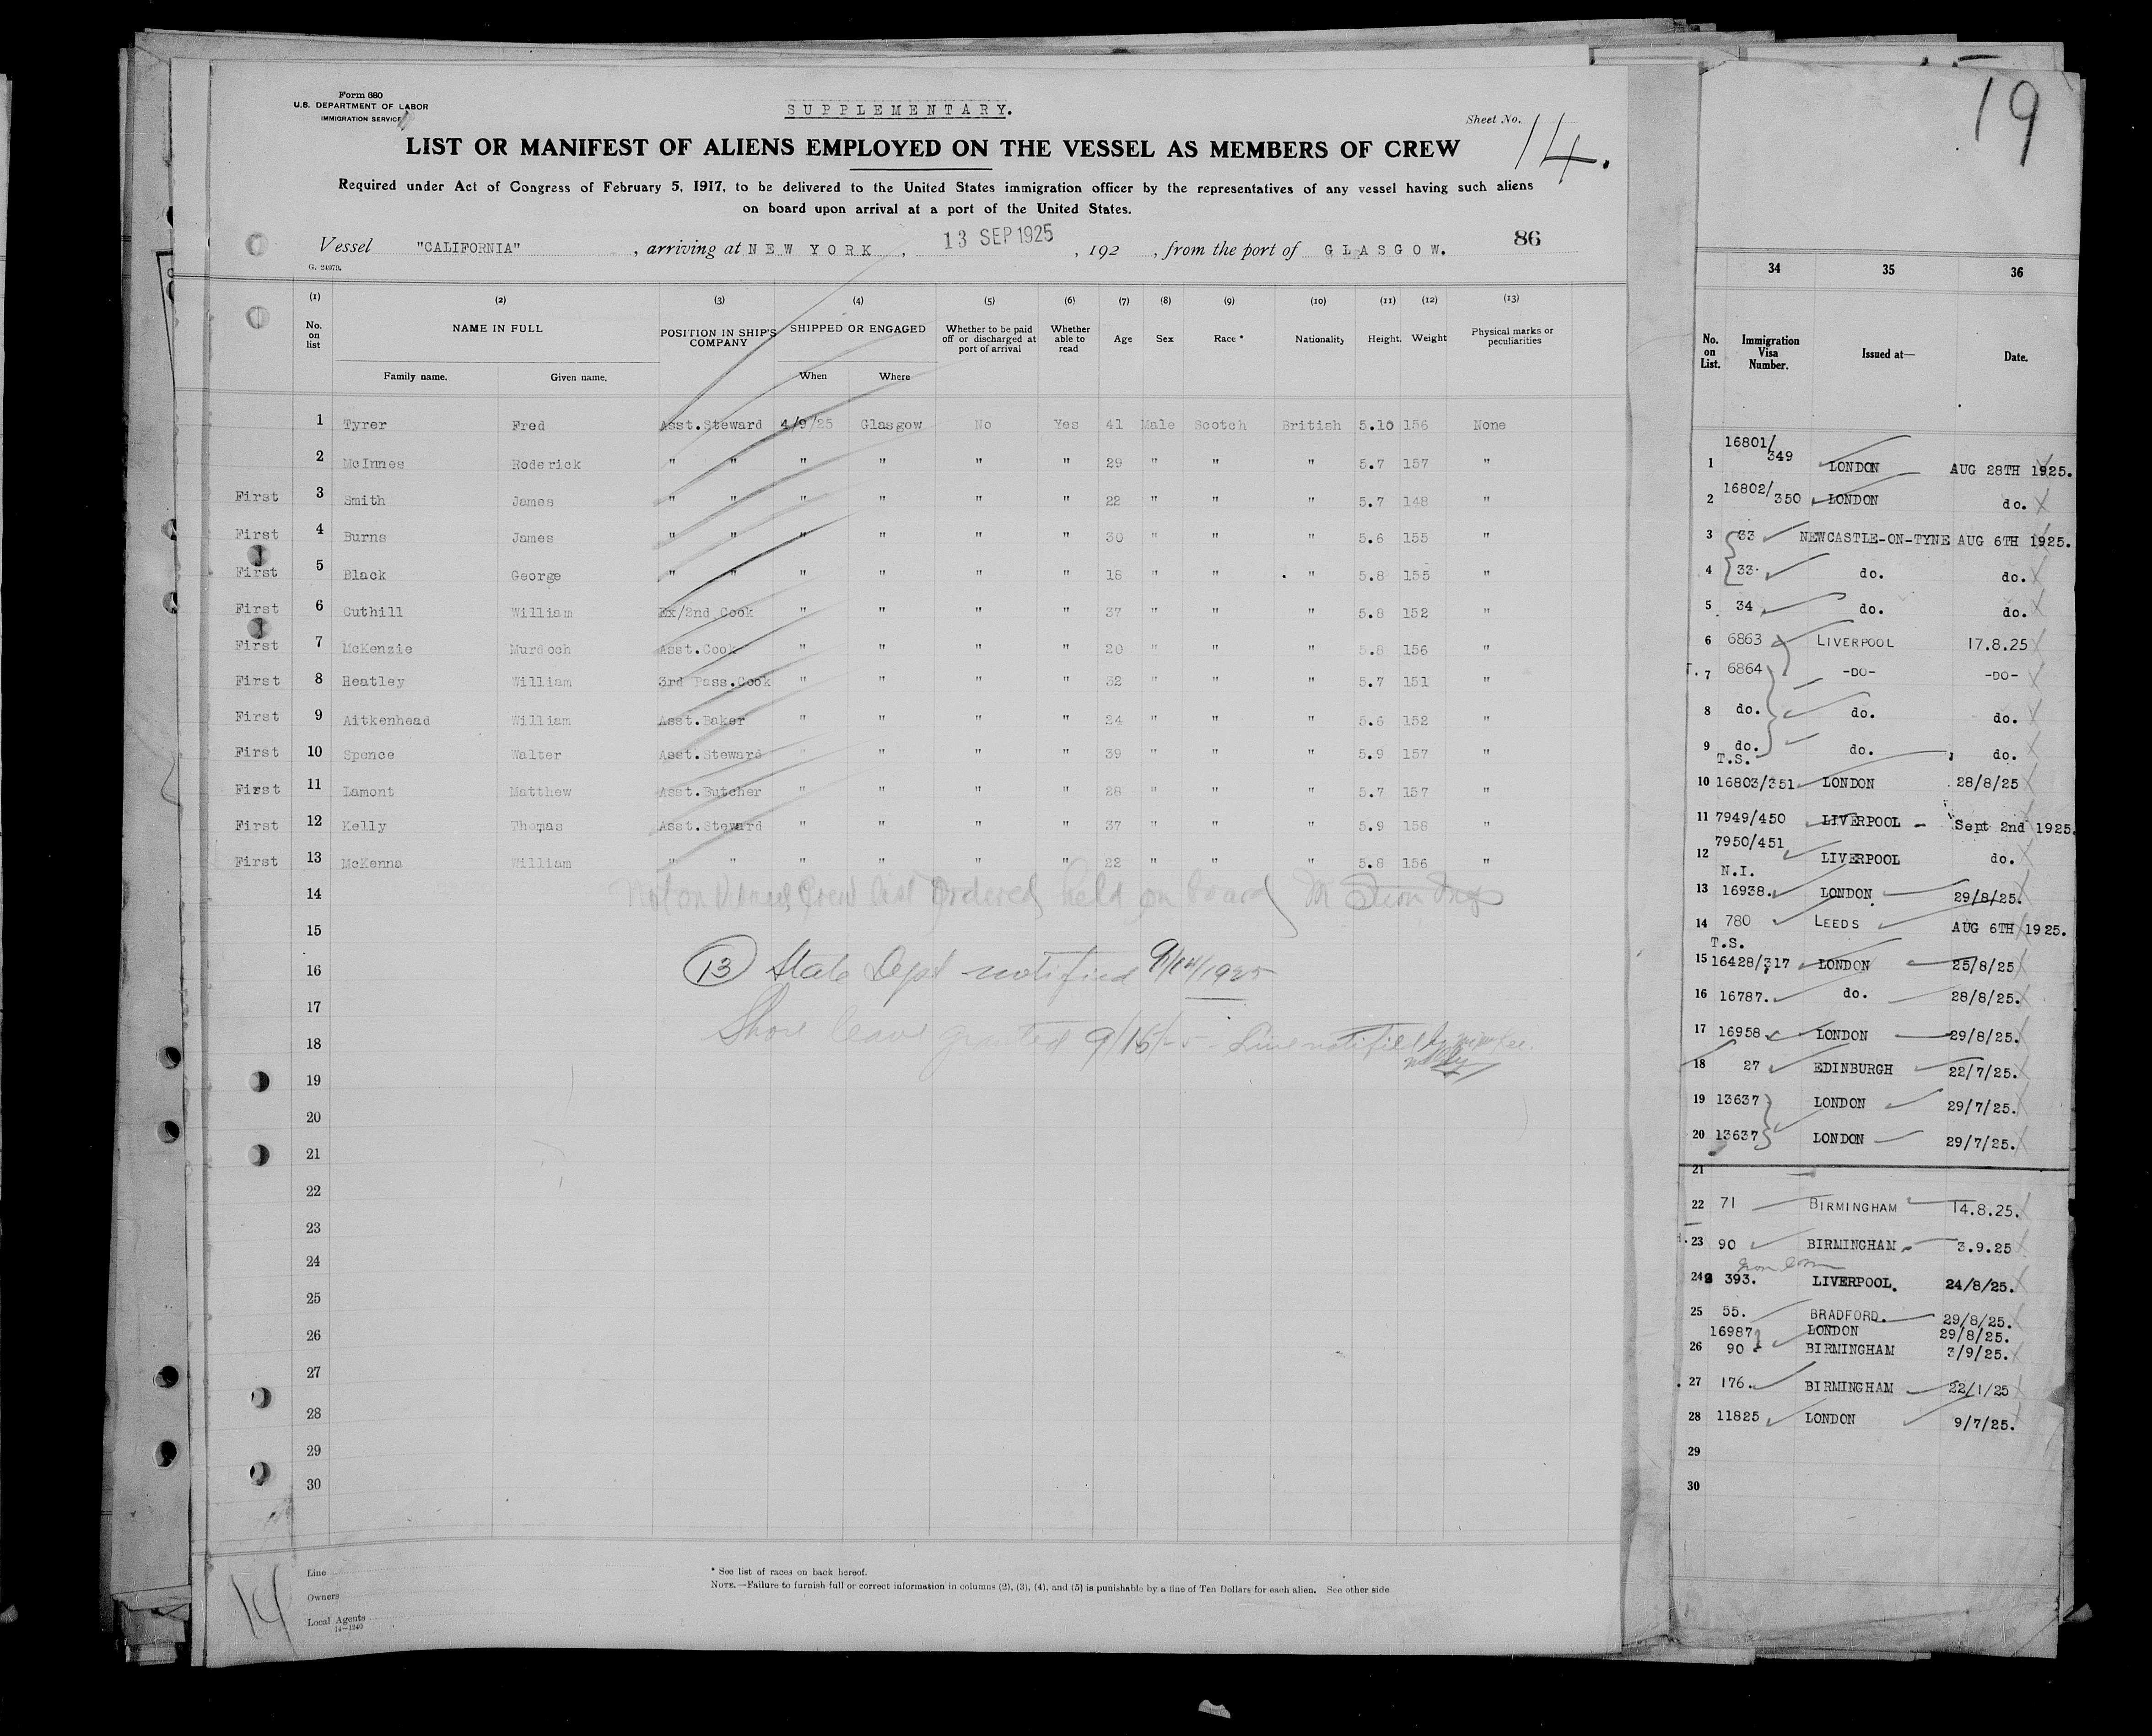 Form 680
U.S. DEPARTMENT OF LABOR
IMMIGRATION SERVICE
SUPPLEMENTARY.
Sheet No. 14.
LIST OR MANIFEST OF ALIENS EMPLOYED ON THE VESSEL AS MEMBERS OF CREW
Required under Act of Congress of February 5, 1917, to be delivered to the United States immigration officer by the representatives of any vessel having such aliens
on board upon arrival at a port of the United States.
Vessel "CALIFORNIA", arriving at NEW YORK, 13 SEP 1925, 192 , from the port of GLASGOW. 86
G. 24979.
(1) (2) (3) (4) (5) (6) (7) (8) (9) (10) (11) (12) (13)
No. on list NAME IN FULL POSITION IN SHIP'S COMPANY SHIPPED OR ENGAGED Whether to be paid off or discharged at port of arrival Whether able to read Age Sex Race * Nationality Height. Weight Physical marks or peculiarities
Family name. Given name. When Where
1 Tyrer Fred Asst.Steward 4/9/25 Glasgow No Yes 41 Male Scotch British 5.10 156 None
2 McInnes Roderick " " " " " " 29 " " " 5.7 157 "
First 3 Smith James " " " " " " 22 " " " 5.7 148 "
First 4 Burns James " " " " " " 30 " " " 5.6 155 "
First 5 Black George " " " " " " 18 " " " 5.8 155 "
First 6 Cuthill William Ex/2nd Cook " " " " 37 " " " 5.8 152 "
First 7 McKenzie Murdoch Asst.Cook " " " " 20 " " " 5.8 156 "
First 8 Heatley William 3rd Pass.Cook " " " " 32 " " " 5.7 151 "
First 9 Aitkenhead William Asst.Baker " " " " 24 " " " 5.6 152 "
First 10 Spence Walter Asst.Steward " " " " 39 " " " 5.9 157 "
First 11 Lamont Matthew Asst.Butcher " " " " 28 " " " 5.7 157 "
First 12 Kelly Thomas Asst.Steward " " " " 37 " " " 5.9 158 "
First 13 McKenna William " " " " " " 22 " " " 5.8 156 "
14 Not on Crew list Ordered held on board
15
16 (13) State Dept notified 9/14/1925
17
18 Shore leave granted 9/15/25 - Line notified
19
20
21
22
23
24
25
26
27
28
29
30
14
Line
Owners
Local Agents
14—1240
* See list of races on back hereof.
NOTE.—Failure to furnish full or correct information in columns (2), (3), (4), and (5) is punishable by a fine of Ten Dollars for each alien. See other side
19
34 35 36
No. on List. Immigration Visa Number. Issued at— Date.
1 16801/349 LONDON AUG 28TH 1925.
2 16802/350 LONDON do.
3 33 NEWCASTLE-ON-TYNE AUG 6TH 1925.
4 33 do. do.
5 34 do. do.
6 6863 LIVERPOOL 17.8.25
7 6864 -DO- -DO-
8 do. do. do.
9 do. do. do.
T.S.
10 16803/351 LONDON 28/8/25
11 7949/450 LIVERPOOL - Sept 2nd 1925.
12 7950/451 LIVERPOOL do.
N.I.
13 16938. LONDON 29/8/25.
14 780 LEEDS AUG 6TH 1925.
T.S.
15 16428/317 LONDON 25/8/25
16 16787. do. 28/8/25.
17 16958 LONDON 29/8/25.
18 27 EDINBURGH 22/7/25.
19 13637 LONDON 29/7/25.
20 13637 LONDON 29/7/25.
21
22 71 BIRMINGHAM 14.8.25.
23 90 BIRMINGHAM 3.9.25
24 393. LIVERPOOL. 24/8/25.
25 55. BRADFORD. 29/8/25.
16987 LONDON 29/8/25.
26 90 BIRMINGHAM 3/9/25.
27 176. BIRMINGHAM 22/1/25
28 11825 LONDON 9/7/25.
29
30